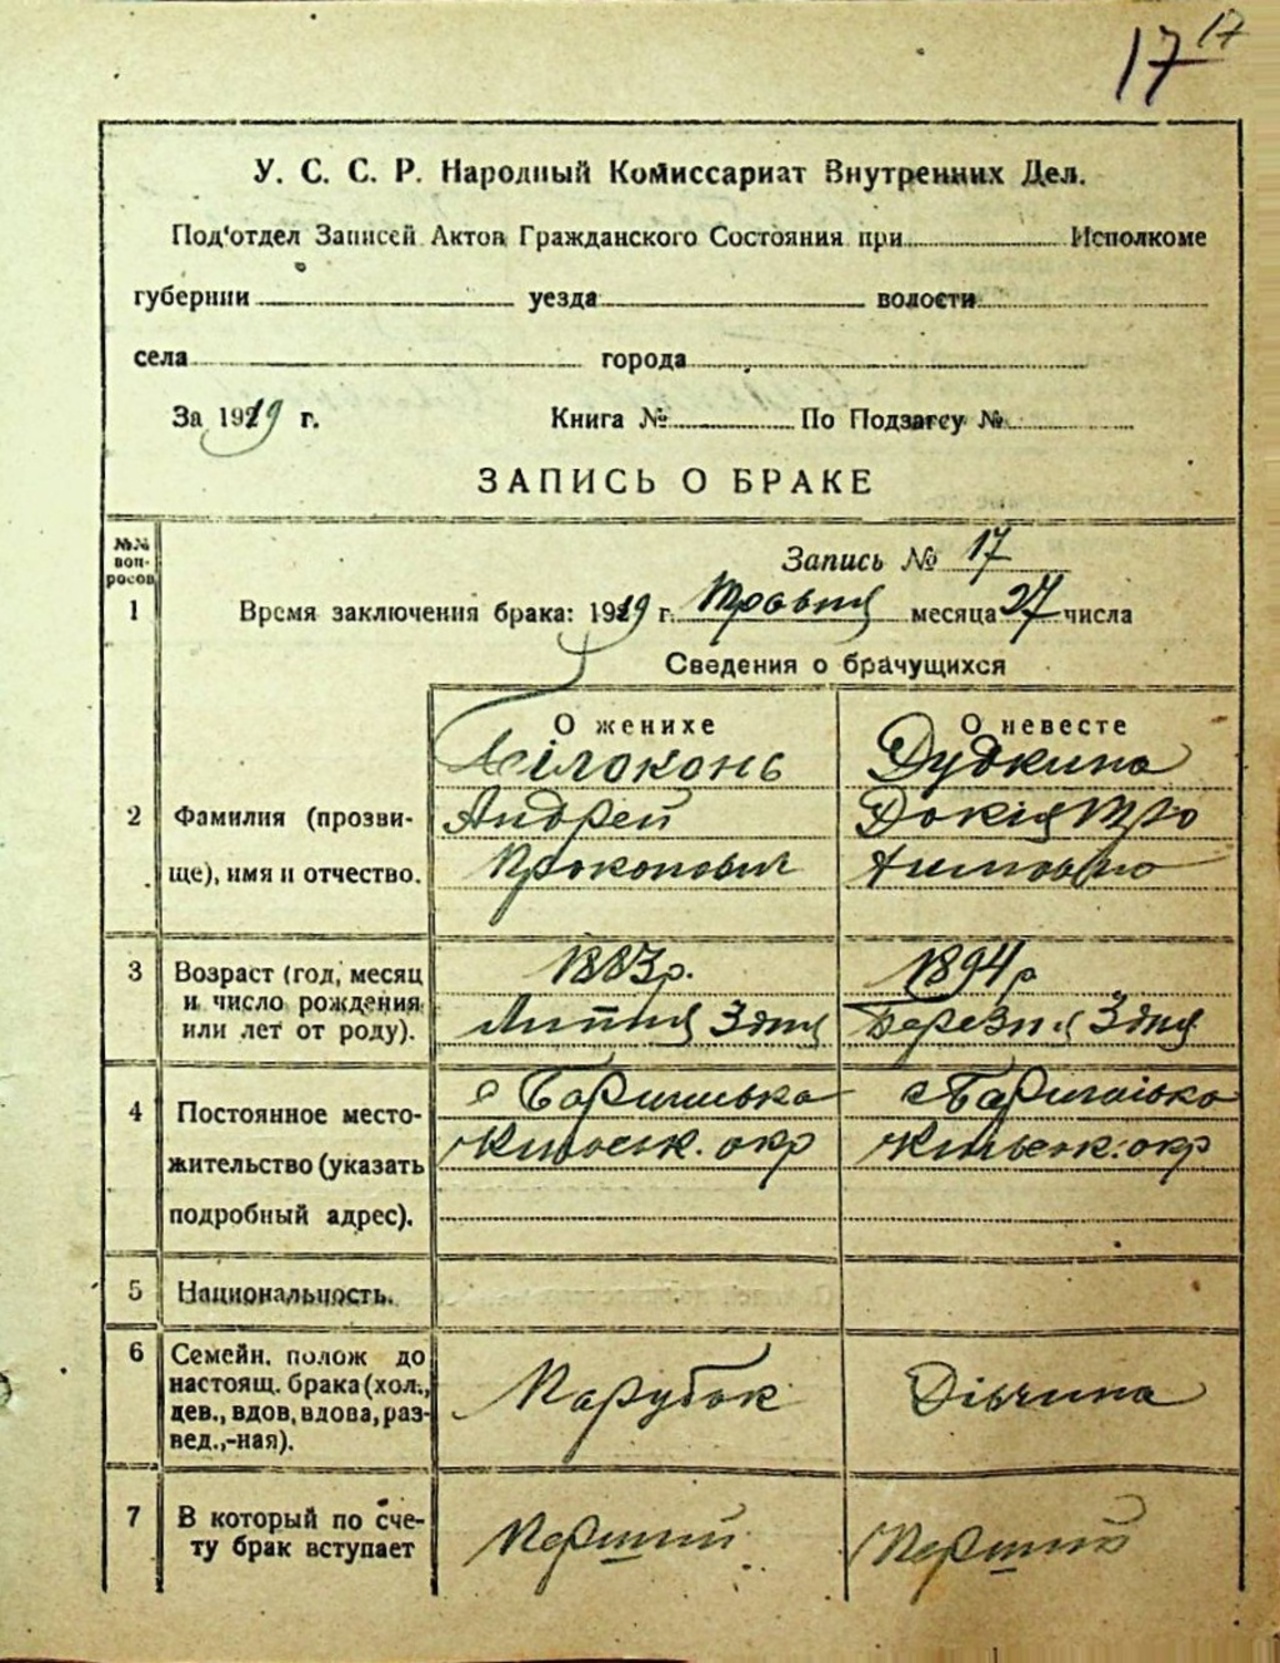 17 17
У. С. С. Р. Народный Комиссариат Внутренних Дел.
Под'отдел Записей Актов Гражданского Состояния при Исполкоме
губернии уезда волости
села города
За 1919 г. Книга № По Подзагсу №
ЗАПИСЬ О БРАКЕ
№№ вопросов
Запись № 17
1 Время заключения брака: 1919 г. Травня месяца 27 числа
Сведения о брачущихся
О женихе О невесте
Білоконь Дудкина
2 Фамилия (прозви- Андрей Докія Тро
ще), имя и отчество. Прокопович химовна
3 Возраст (год, месяц 1883р. 1894р
и число рождения
или лет от роду). Липня 3 дня Березня 3 дня
4 Постоянное место- с Баришівка с Баришівка
жительство (указать Київськ. окр Київськ. окр
подробный адрес).
5 Национальность.
6 Семейн. полож до
настоящ. брака (хол., Парубок Дівчина
дев., вдов, вдова, раз-
вед.,-ная).
7 В который по сче- Перший Перший
ту брак вступает